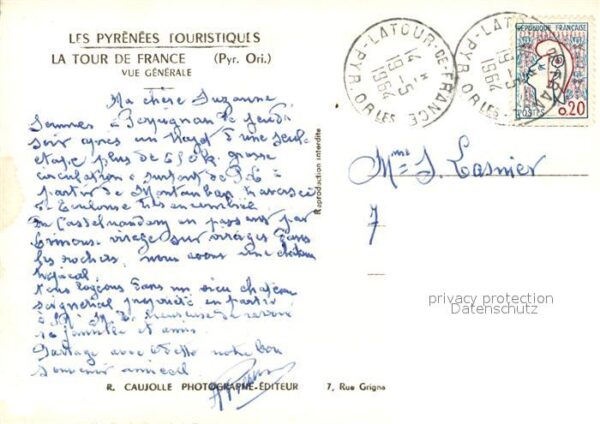 LES PYRÉNÉES TOURISTIQUES
LA TOUR DE FRANCE (Pyr. Ori.)
VUE GÉNÉRALE
Ma chère Suzanne
Sommes à Perpignan de jeudi
soir après un d'une seule
étape plus de grosse
circulation surtout de
partir de Montauban traversée
de Toulouse très
Castelnaudary en passant par
virage sur virages dans
les rochers, nous avons une chaleur
tropicale
Nous logeons dans un vieux château
seigneurial propriété en partie
à heureuse de revoir
sa famille et amis
Partage avec Odette notre bon
souvenir amical
R. CAUJOLLE PHOTOGRAPHE-ÉDITEUR 7, Rue Grigna
Reproduction interdite
LATOUR-DE-FRANCE
PYR. ORLES
19-5
1964
LATOUR-DE-FRANCE
PYR. ORLES
19-5
1964
RÉPUBLIQUE FRANÇAISE
POSTES
0,20
Mme S. Lasnier
7
privacy protection
Datenschutz